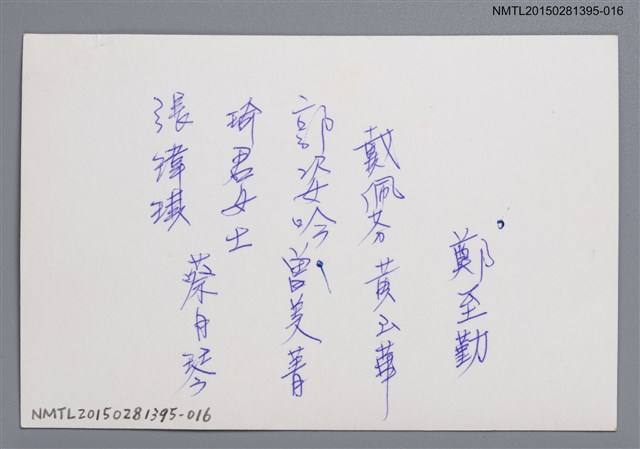 NMTL20150281395-016
鄭至勤
戴佩芬 黃玉華
郭姿吟 曾美菁
琦君女士
張瑋琪 蔡月琴
NMTL20150281395-016